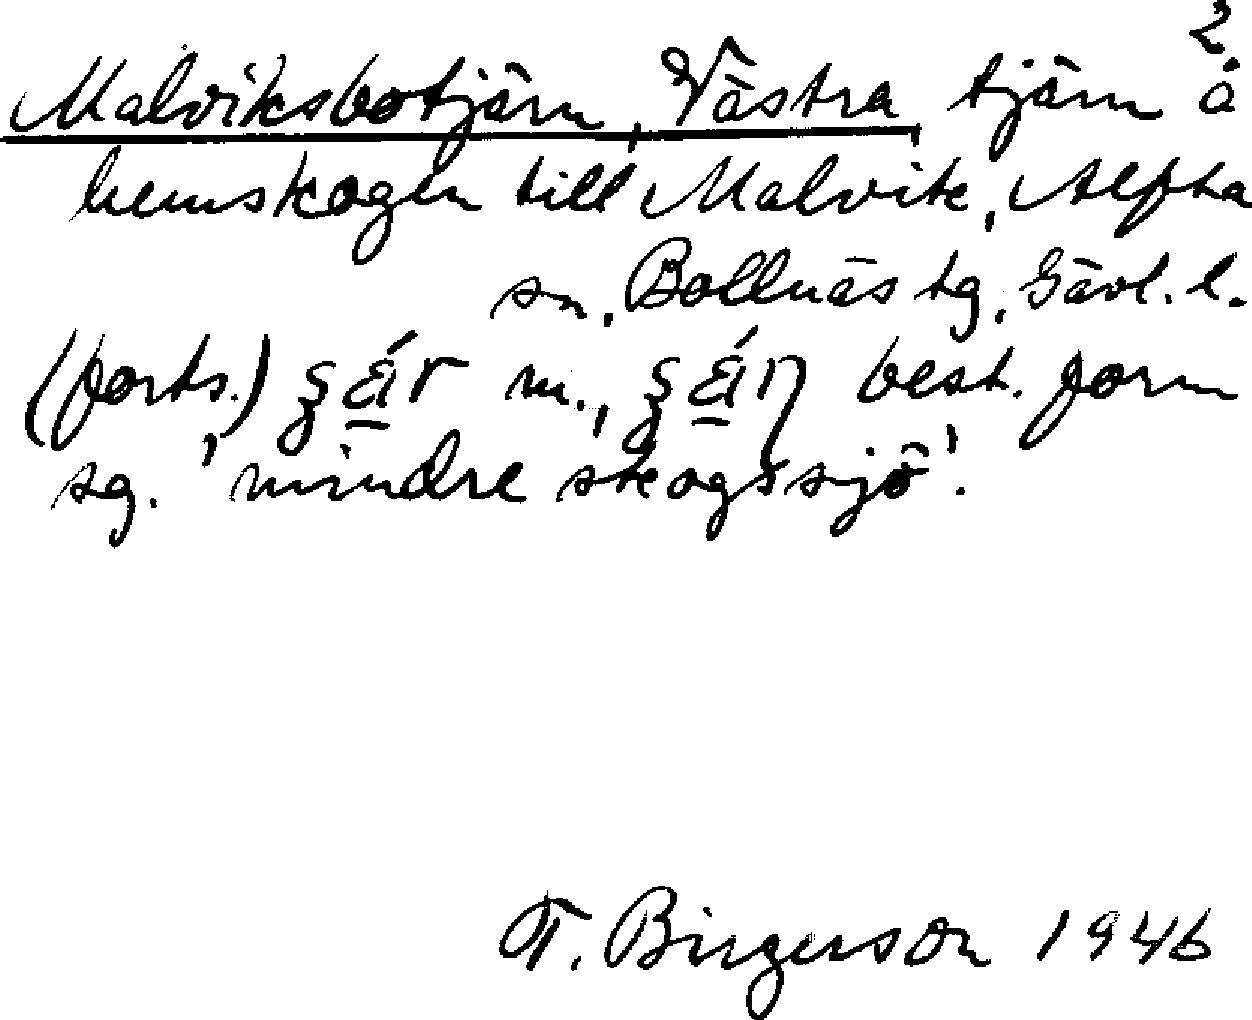 2.
Malviksbotjärn, Västra, tjärn å
hemskogen till Malvik, Alfta
sn, Bollnäs tg, Gävl. l.
(forts.) m., best. form
sg. 'mindre skogssjö'.
T. Birgerson 1946